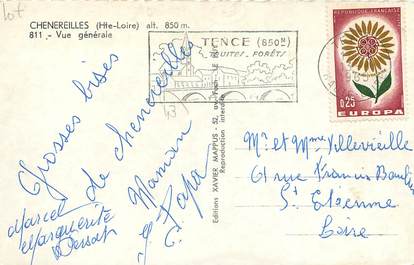 lot
CHENEREILLES (Hte-Loire) alt. 850 m.
811 - Vue générale
TENCE (850M)
TRUITES - FORÊTS
REPUBLIQUE FRANÇAISE
0,25
EUROPA
Grosses bises
de chenereilles
Maman
& Papa
Marcel
Marguerite
Editions XAVIER MAPPUS - 52, av.
Reproduction interdite
Mr et Mme Villevieille
61 rue Francis Baulier
St Etienne
Loire